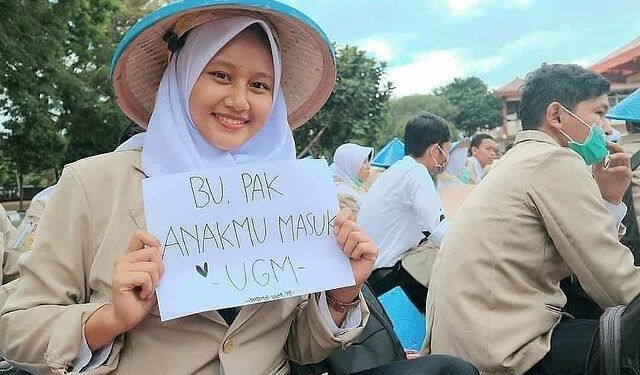 BU. PAK
ANAKMU MASUK
- UGM -